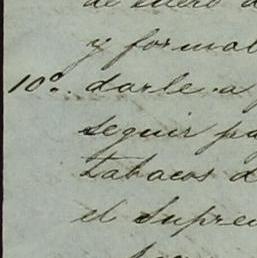 de enero d
y formal
10º. darle a
seguir pa
tabacos d
el Supre